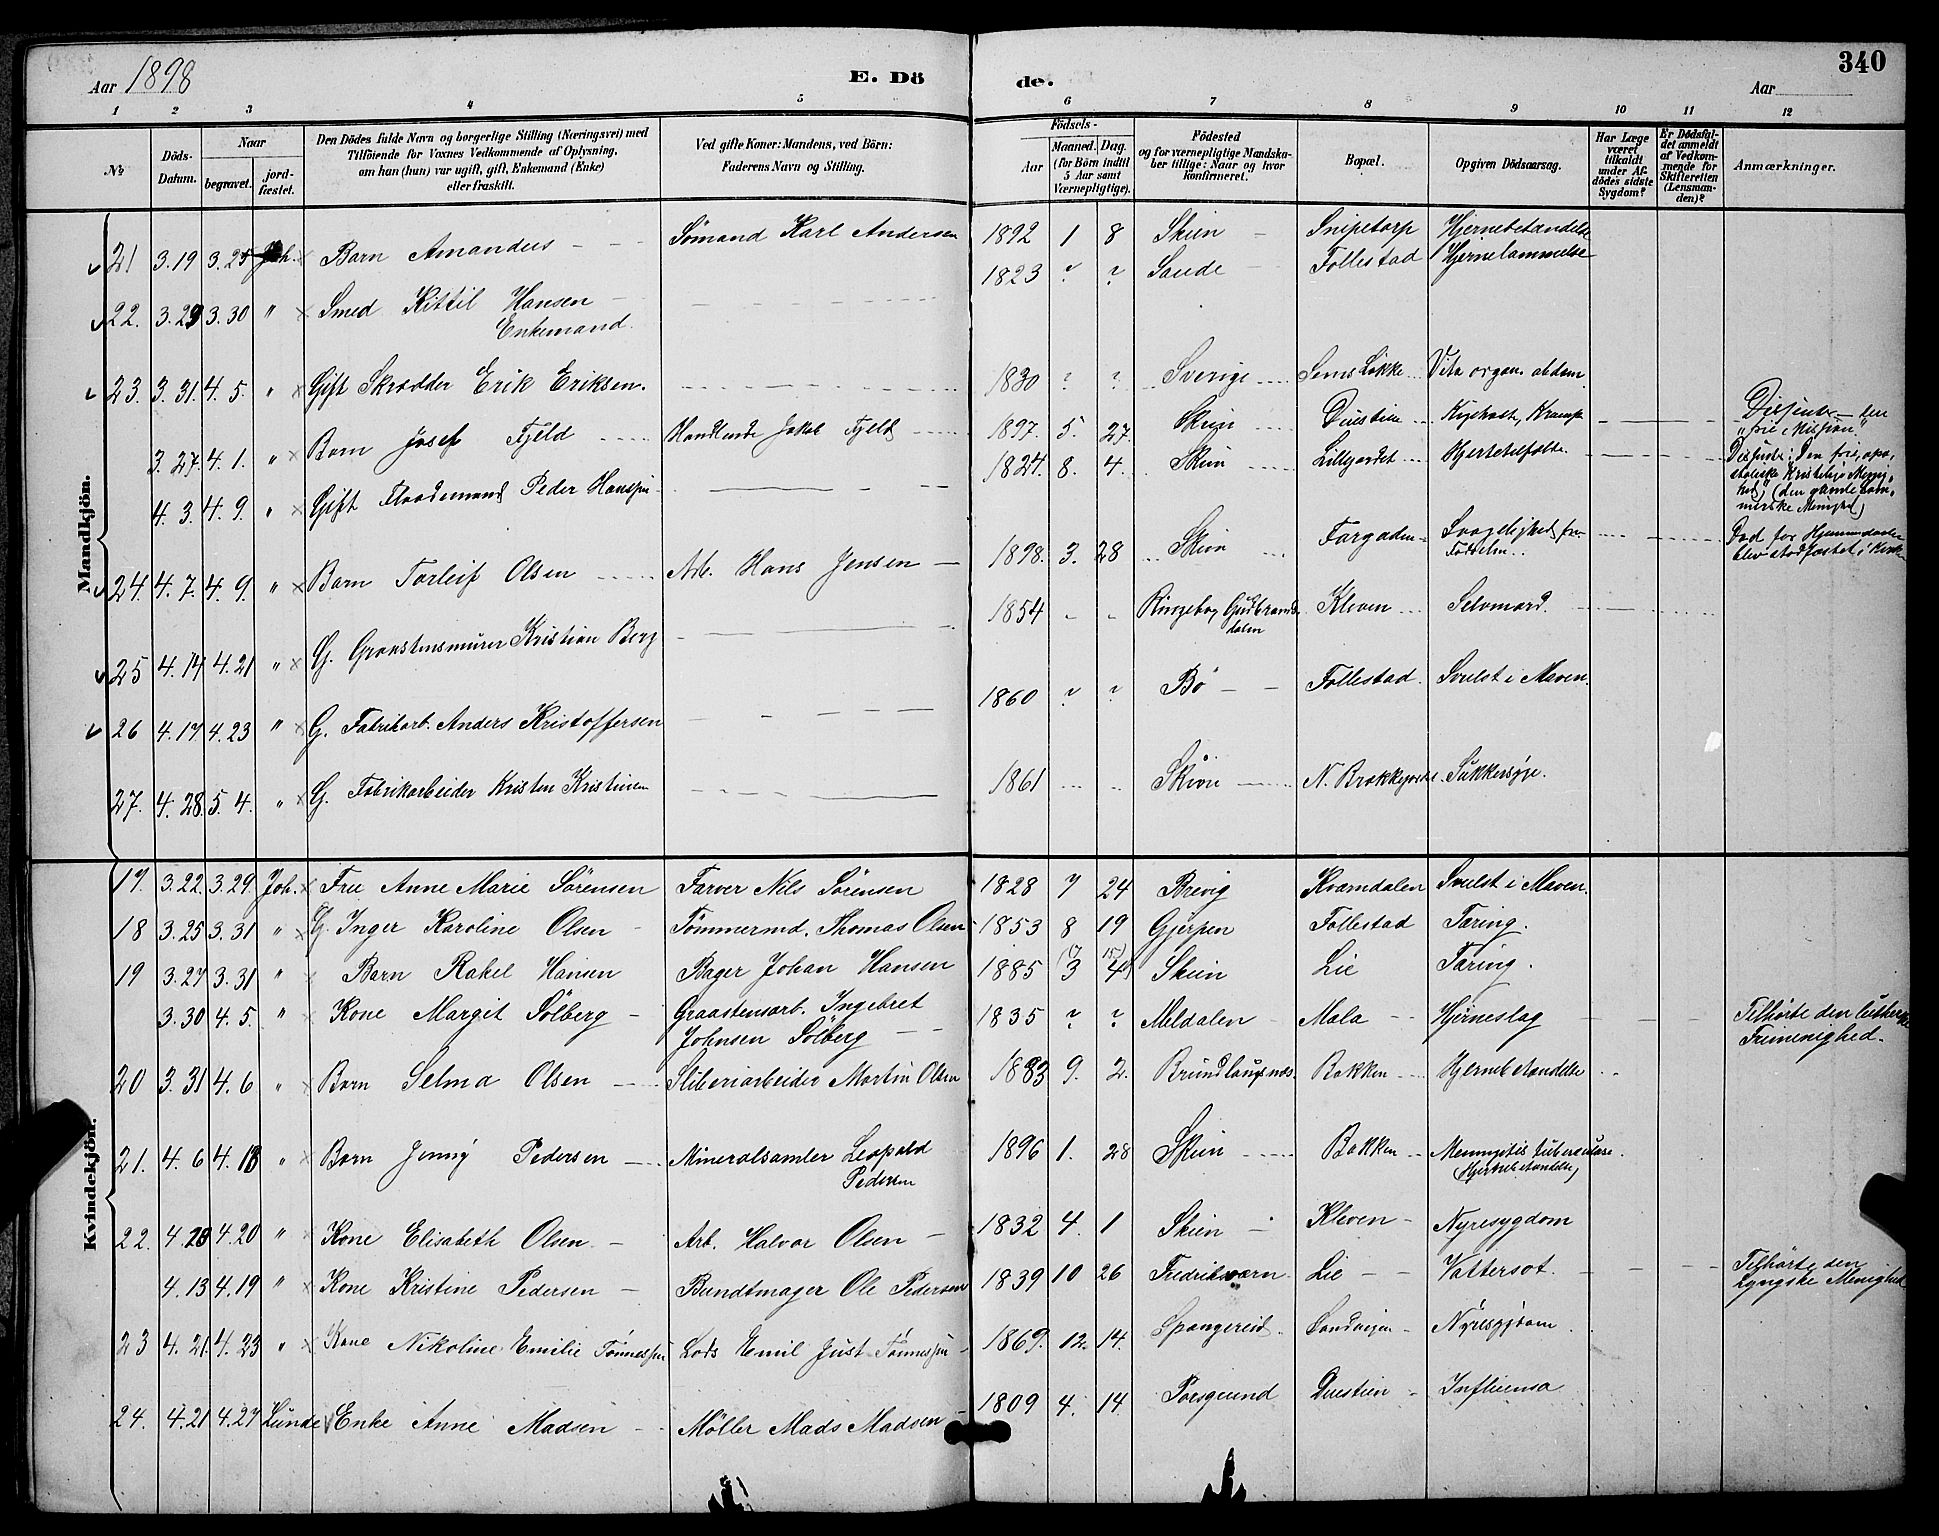 Aar 1898
E. Dö
de.
340
Aar
1 2 3 4 5 6 7 8 9 10 11 12
No
Döds-Datum.
Naar
begravet.
jord-fæstet.
Den Dödes fulde Navn og borgerlige Stilling (Næringsvei) med
Tilföiende for Voxnes Vedkommende af Oplysning,
om han (hun) var ugift, gift, Enkemand (Enke)
eller fraskilt.
Ved gifte Koner: Mandens, ved Börn:
Faderens Navn og Stilling.
Födsels-
Aar
Maaned. Dag.
(for Börn indtil
5 Aar samt
Værnepligtige).
Födested
og for værnepligtige Mandska-
ber tillige: Naar og hvor
konfirmeret.
Bopæl.
Opgiven Dödsaarsag.
Har Læge
været
tilkaldt
under Af-
dödes sidste
Sygdom?
Er Dödsfal-
det anmeldt
af Vedkom-
mende for
Skifteretten
(Lensman-
den)?
Anmærkninger.
Mandkjön.
21 3.19 3.25 Joh. Barn Amandus Sømand Karl Andersen 1892 1 8 Skien Snipetorp Hjernebetændelse
22. 3.23 3.30 " Smed Kittil Hansen 1823 ? ? Saude Follestad Hjernelammelse
Enkemand.
23. 3.31 4.5. " Gift Skrædder Erik Eriksen. 1830 ? ? Sverige Løkke Vita organ. abdom.
3.27. 4.1. " Barn Josef Fjeld Handlende Jakob Fjeld 1897. 5. 27. Skien Duestien Kighoste, Krampe Dissenter den
"frie Mission."
4.3. 4.9. " Gift Flaademand Peder Hanssen 1824. 8. 4. Skien Lillejordet Hjertetilfælde. Dissenter: Den frie, apo-
stoliske Kristelige Menig-
hed, (den gamle Lam-
merske Menighed)
24. 4.7. 4.9. " Barn Torleif Olsen Arb. Hans Jensen 1898. 3. 28 Skien Fargaden Svagelighed fra
Fødselen. Død før Hjemmedaaben
blev stadfæstet i Kirk
25 4.14 4.21 " G. Graastensmurer Kristian Berg 1854 " " Ringebo, Gudbrands-
dalen Kleven Selvmord.
26 4.17 4.23 " G. Fabrikarb. Anders Kristoffersen 1860 ? ? Bø Follestad. Svulst i Maven.
27. 4.28. 5.4. " G. Fabrikarbeider Kristen Kristensen 1861 Skien N. Brækkegade. Sukkersyge.
Kvindekjön.
17. 3.22. 3.29. Joh. Frue Anne Marie Sørensen Farver Nils Sørensen 1828 7 24 Brevig Kvamdalen Svulst i Maven.
18 3.25 3.31 " G. Inger Karoline Olsen Tømmermd. Thomas Olsen 1853 8 19 Gjerpen Follestad Tæring.
19 3.27 3.31 " Barn Rakel Hansen Bager Johan Hansen 1885 3 4 Skien Lie Tæring.
3.30 4.5. " Kone Margit Solberg Graastensarb. Ingebret
Johnsen Solberg 1835 ? ? Meldalen Mæla Hjerneslag Tilhørte den lutherske
Frimenighed.
20 3.31 4.6 " Barn Selma Olsen Sliberiarbeider Martin Olsen 1883 9. 2. Brunlangnæs. Bakken Hjernebetændelse
21. 4.6 4.13 " Barn Jenny Pedersen Mineralsamler Leopold
Pedersen 1896 1. 28 Skien Bakken Meningitis tuberculosa.
22. 4.20 4.20 " Kone Elisabeth Olsen Arb. Halvor Olsen 1832 4. 1 Skien Kleven Nyresygdom
4.13 4.19 " Kone Kristine Pedersen Bundtmager Ole Pedersen 1839 10 26 Fredriksværn Lie Vattersot. Tilhørte den
Lyngske Menighed
23 4.21. 4.23 " Kone Nikoline Emilie Tønnessen Lods Emil Just Tønnessen 1869. 12. 14. Spangereid. Landvigen Nyresygdom
24. 4.21 4.27 Lunde Enke Anne Madsen Møller Mads Madsen 1809 4. 14. Porsgrund Duestien Influensa